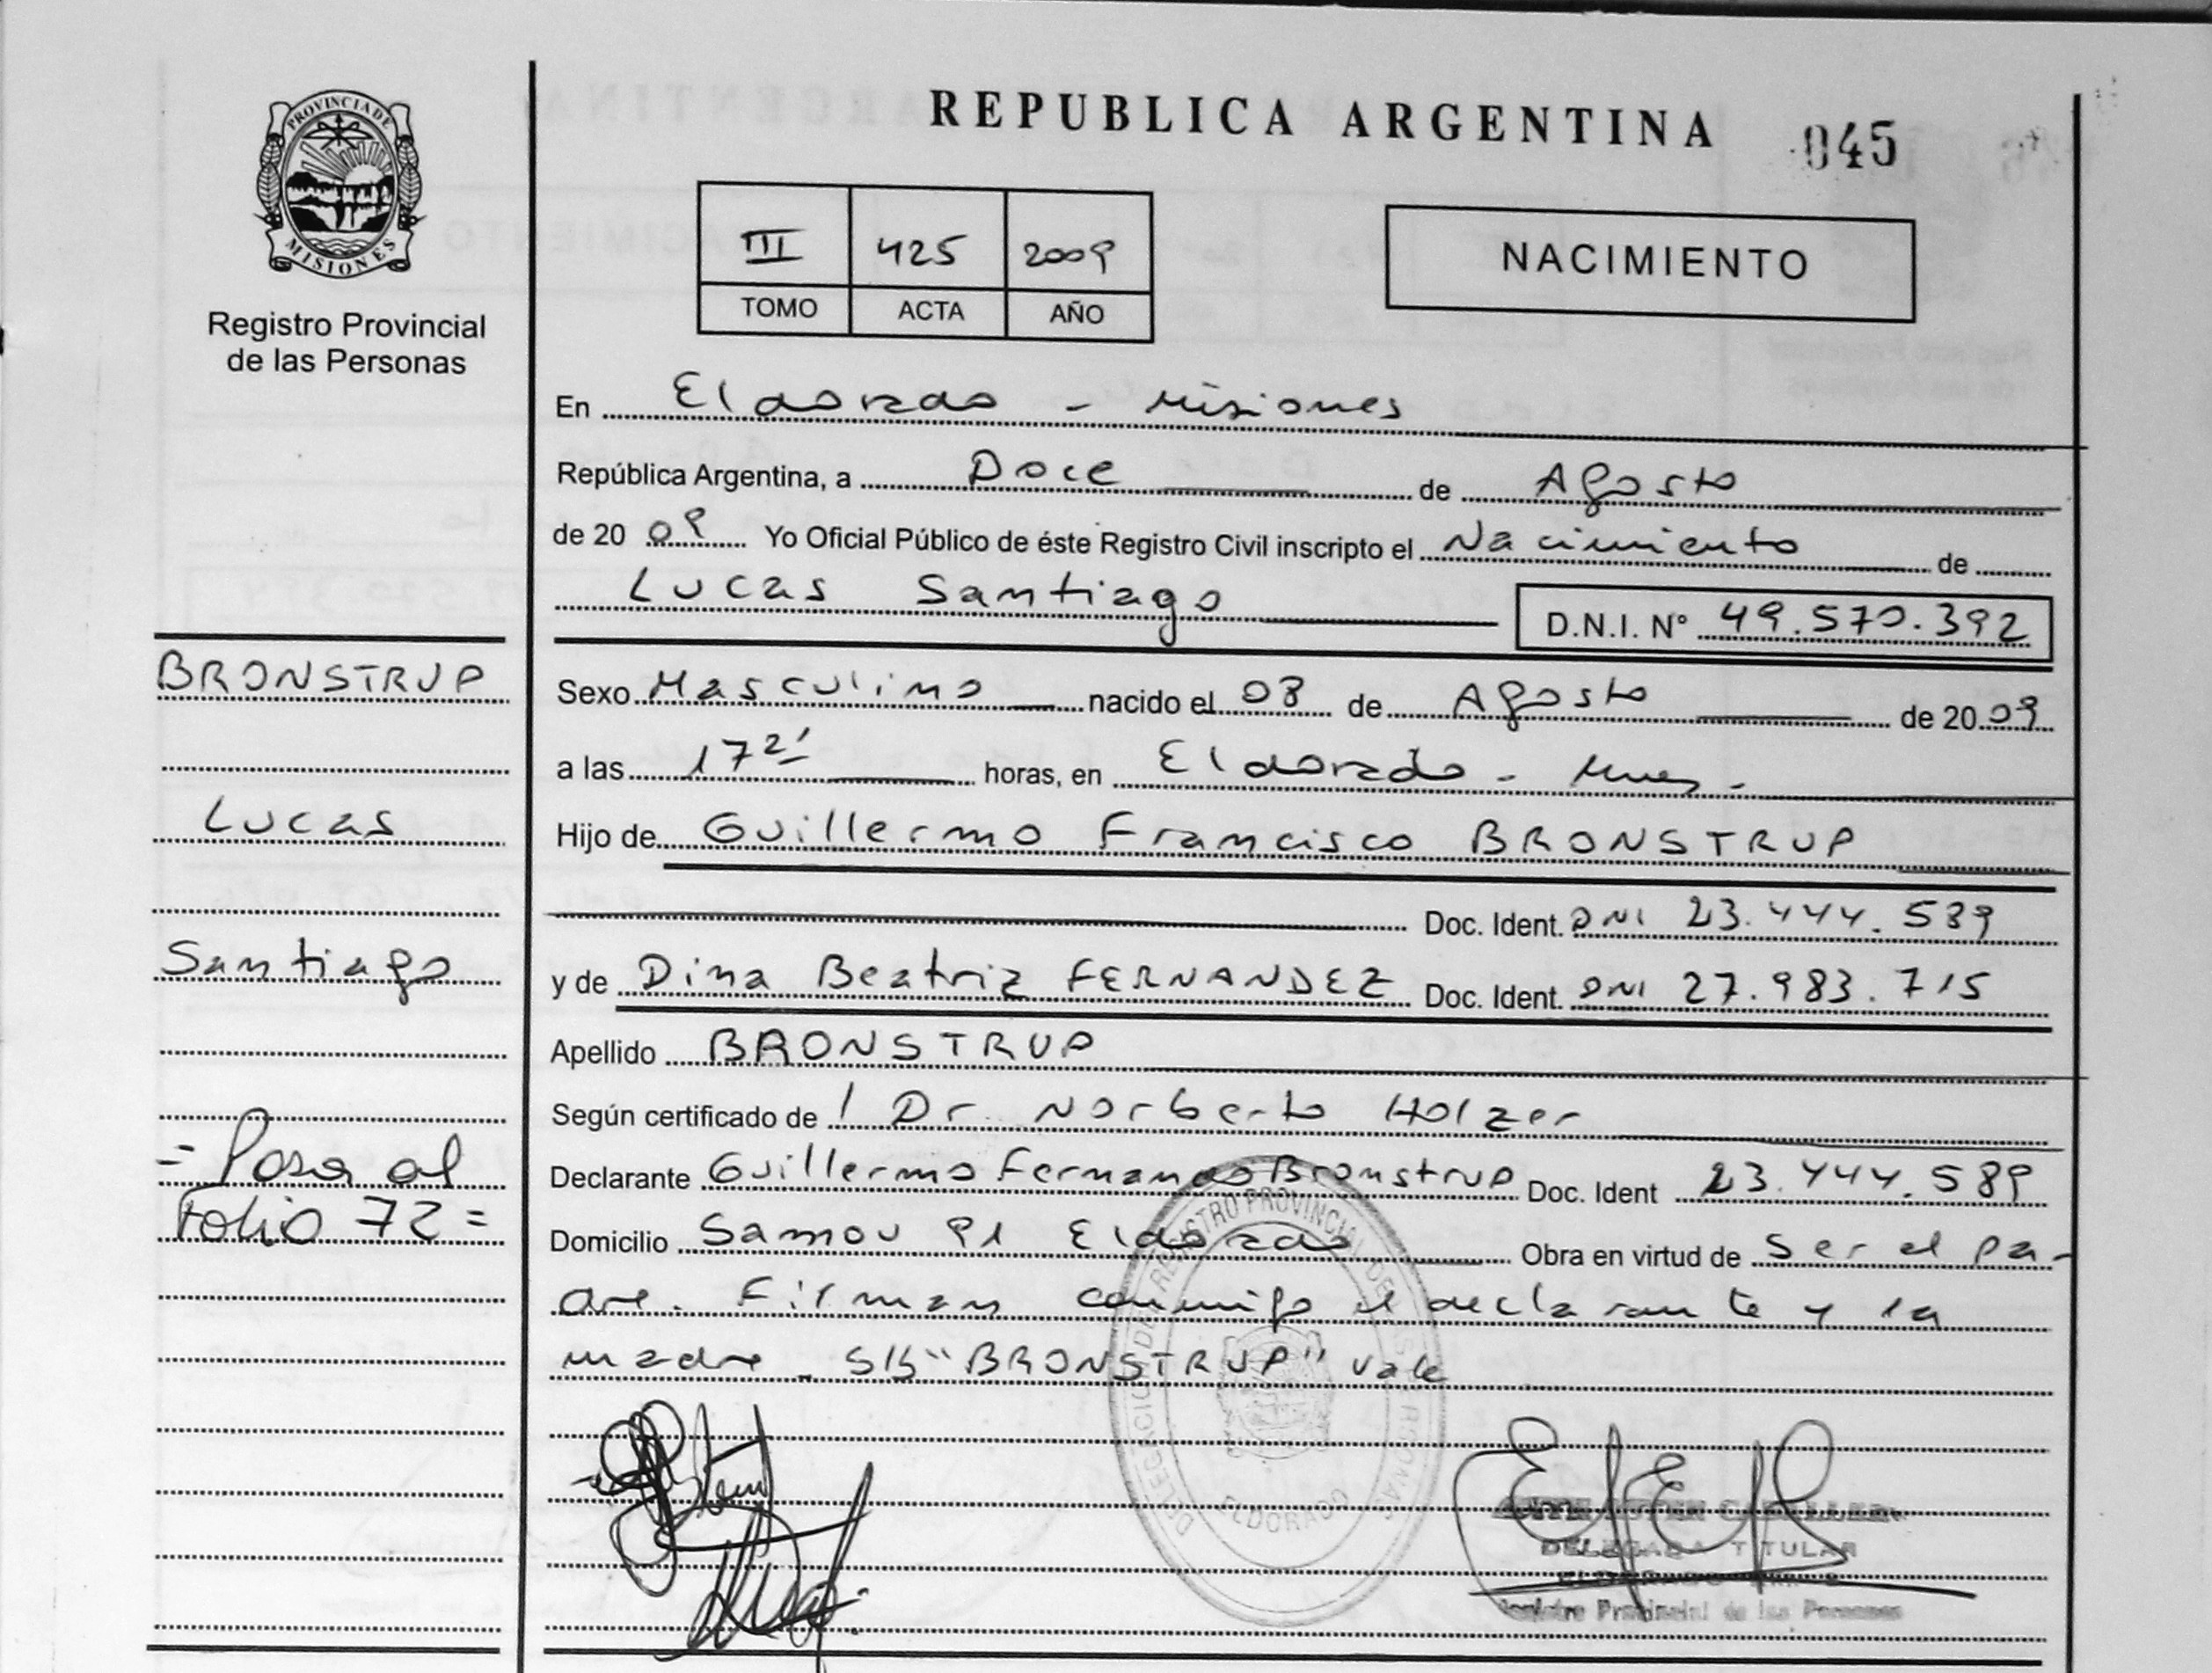 PROVINCIA DE
MISIONES
Registro Provincial
de las Personas
REPUBLICA ARGENTINA 045
III 425 2009
TOMO ACTA AÑO
NACIMIENTO
En Eldorado - Misiones
República Argentina, a Doce de Agosto
de 20 09 Yo Oficial Público de éste Registro Civil inscripto el Nacimiento de
Lucas Santiago D.N.I. N° 49.570.392
Sexo Masculino nacido el 08 de Agosto de 20 09
a las 17 21 horas, en Eldorado - Mnes -
Hijo de Guillermo Francisco BRONSTRUP
Doc. Ident. DNI 23.444.589
y de Dina Beatriz FERNANDEZ Doc. Ident. DNI 27.983.715
Apellido BRONSTRUP
Según certificado de Dr. Norberto Holzer
Declarante Guillermo Fernando Bronstrup Doc. Ident 23.444.589
Domicilio Samou 91 Eldorado Obra en virtud de Ser el pa-
dre. Firman conmigo el declarante y la
madre - S/B "BRONSTRUP" vale
BRONSTRUP
Lucas
Santiago
= Pasa al
Folio 72 =
DELEGACION DEL REGISTRO PROVINCIAL DE LAS PERSONAS
ELDORADO
DELEGADA TITULAR
Registro Provincial de las Personas